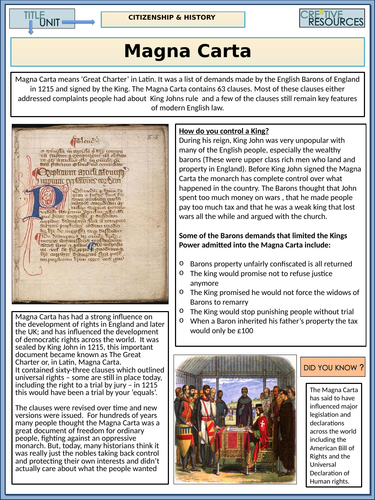 TITLE
UNIT
CITIZENSHIP & HISTORY
CRE TIVE
RESOURCES
Magna Carta
Magna Carta means ‘Great Charter’ in Latin. It was a list of demands made by the English Barons of England
in 1215 and signed by the King. The Magna Carta contains 63 clauses. Most of these clauses either
addressed complaints people had about King Johns rule and a few of the clauses still remain key features
of modern English law.
How do you control a King?
During his reign, King John was very unpopular with
many of the English people, especially the wealthy
barons (These were upper class rich men who land and
property in England). Before King John signed the Magna
Carta the monarch has complete control over what
happened in the country. The Barons thought that John
spent too much money on wars , that he made people
pay too much tax and that he was a weak king that lost
wars all the while and argued with the church.
Some of the Barons demands that limited the Kings
Power admitted into the Magna Carta include:
o Barons property unfairly confiscated is all returned
o The king would promise not to refuse justice
anymore
o The King promised he would not force the widows of
Barons to remarry
o The King would stop punishing people without trial
o When a Baron inherited his father’s property the tax
would only be £100
Magna Carta has had a strong influence on
the development of rights in England and later
the UK; and has influenced the development
of democratic rights across the world. It was
sealed by King John in 1215, this important
document became known as The Great
Charter or, in Latin, Magna Carta.
It contained sixty-three clauses which outlined
universal rights – some are still in place today,
including the right to a trial by jury – in 1215
this would have been a trial by your ‘equals’.
The clauses were revised over time and new
versions were issued. For hundreds of years
many people thought the Magna Carta was a
great document of freedom for ordinary
people, fighting against an oppressive
monarch. But, today, many historians think it
was really just the nobles taking back control
and protecting their own interests and didn’t
actually care about what the people wanted
DID YOU KNOW ?
The Magna Carta
has said to have
influenced major
legislation and
declarations
across the world
including the
American Bill of
Rights and the
Universal
Declaration of
Human rights.